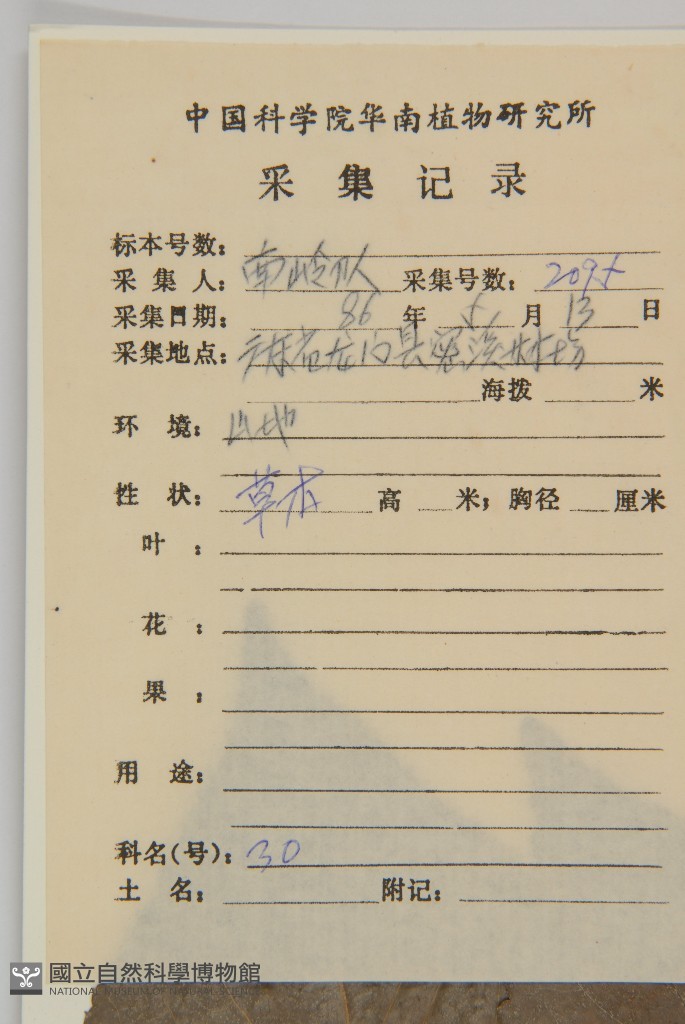 中国科学院华南植物研究所
采集记录
标本号数:
采集人: 南岭队 采集号数: 2095
采集日期: 86年5月13日
采集地点: 广东省龙门县密溪林场
海拨 米
环境: 山地
性状: 草本 高 米; 胸径 厘米
叶:
花:
果:
用途:
科名(号): 30
土名: 附记:
國立自然科學博物館
NATIONAL MUSEUM OF NATURAL SCIENCE